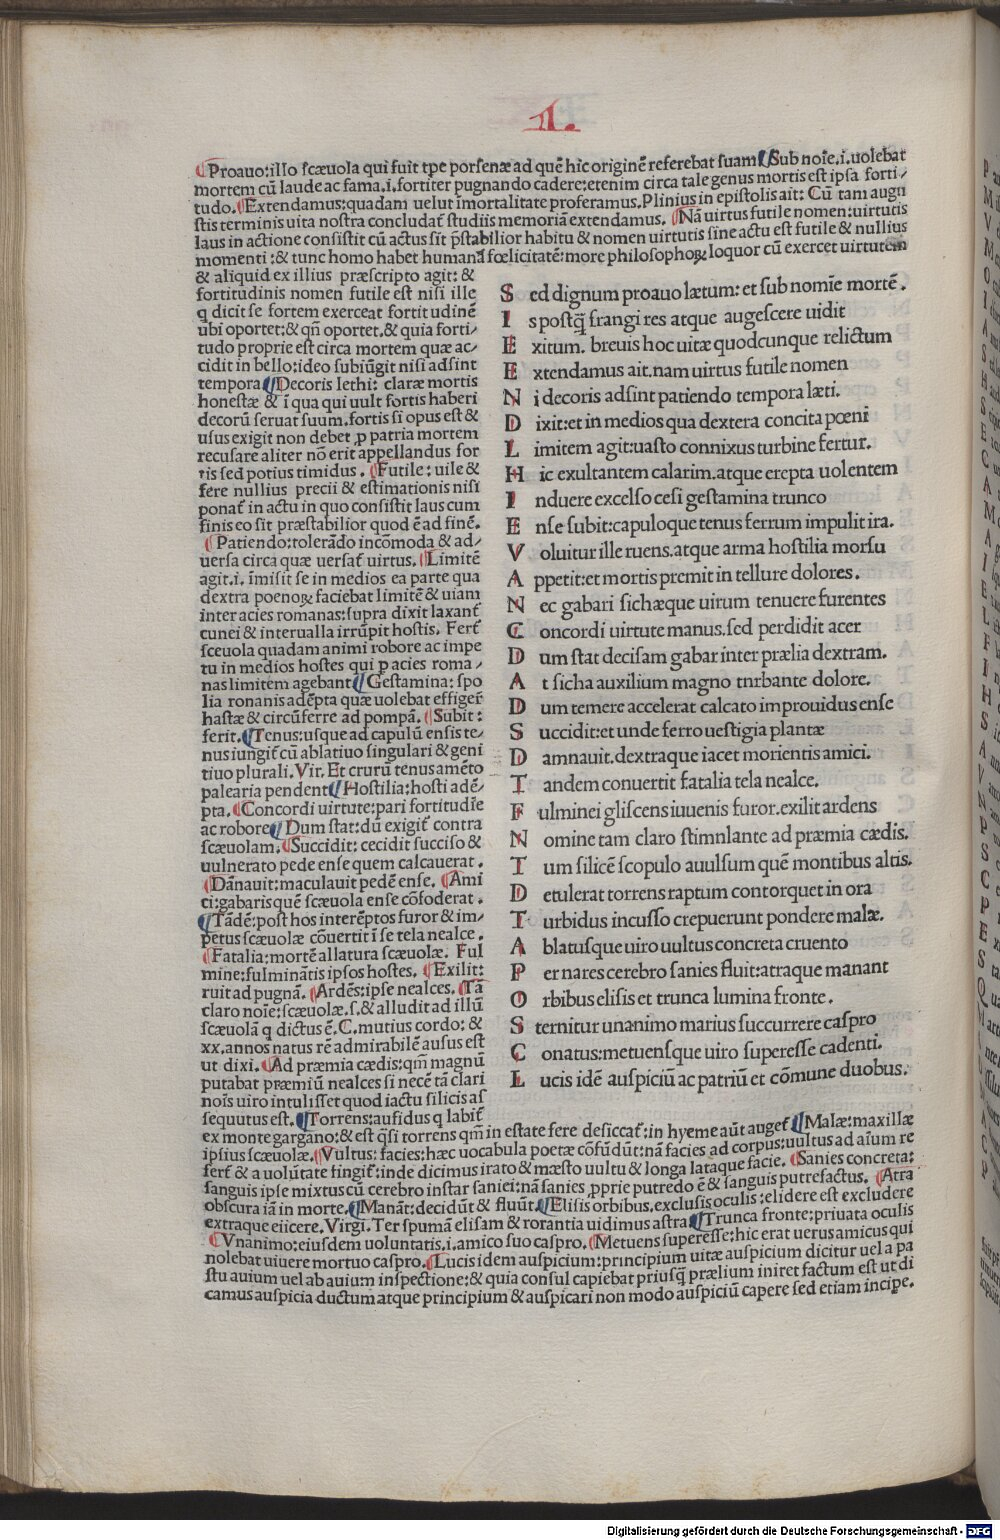 1.
Proauo:illo scæuola qui fuit tpe porsenæ ad quē hic originē referebat suam Sub noīe.i.uolebat
mortem cū laude ac fama.i.fortiter pugnando cadere:etenim circa tale genus mortis est ipsa forti-
tudo. Extendamus:quadam uelut īmortalitate proferamus.Plinius in epistolis ait: Cū tam augu
stis terminis uita nostra concludat̄ studiis memoriā extendamus. Nā uirtus futile nomen:uirtutis
laus in actione consistit cū actus sit p̄stabilior habitu & nomen uirtutis sine actu est futile & nullius
momenti:& tunc homo habet humanā fœlicitatē:more philosophoꝝ loquor cū exercet uirtutem
& aliquid ex illius præscripto agit: &
fortitudinis nomen futile est nisi ille
q dicit se fortem exerceat fortitudinē
ubi oportet:& qn̄ oportet.& quia forti-
tudo proprie est circa mortem quæ ac-
cidit in bello:ideo subiūgit nisi adsint
tempora Decoris lethi: claræ mortis
honestæ & ī qua qui uult fortis haberi
decorū seruat suum.fortis si opus est &
usus exigit non debet ꝓ patria mortem
recusare aliter nō erit appellandus for
tis sed potius timidus. Futile: uile &
fere nullius precii & estimationis nisi
ponat̄ in actu in quo consistit laus cum
finis eo sit præstabilior quod ē ad finē.
Patiendo:tolerādo incōmoda & ad-
uersa circa quæ uersat̄ uirtus. Limitē
agit.i. īmisit se in medios ea parte qua
dextra poenoꝝ faciebat limitē & uiam
inter acies romanas:supra dixit laxant̄
cunei & interualla irrūpit hostis. Fert̄
sceuola quadam animi robore ac impe
tu in medios hostes qui p acies roma-
nas limitem agebant Gestamina: spo
lia ronanis adēpta quæ uolebat effiger̄
hastæ & circūferre ad pompā. Subit:
ferit. Tenus:usque ad capulū ensis te-
nus iungit̄ cū ablatiuo singulari & geni
tiuo plurali. Vir. Et crurū tenus amēto
palearia pendent Hostilia:hosti adē-
pta. Concordi uirtute:pari fortitudīe
ac robore Dum stat:dū exigit̄ contra
scæuolam. Succidit: cecidit succiso &
uulnerato pede ense quem calcauerat.
Dānauit:maculauit pedē ense. Ami
ci:gabaris quē scæuola ense cōfoderat.
Tādē:post hos interēptos furor & im-
petus scæuolæ cōuertit ī se tela nealce.
Fatalia:mortē allatura scæuolæ. Ful
mine:fulminātis ipsos hostes. Exilit:
ruit ad pugnā. Ardēs:ipse nealces. Tā
claro noīe:scæuolæ.s.& alludit ad illū
scæuolā q dictus ē.C.mutius cordo:&
xx.annos natus rē admirabilē ausus est
ut dixi. Ad præmia cædis:qm̄ magnū
putabat præmiū nealces si necē tā clari
noīs uiro intulisset quod iactu silicis as
sequutus est. Torrens:aufidus q labit̄
ex monte gargano:& est q̄si torrens qm̄ in estate fere desiccat̄:in hyeme aūt auget̄ Malæ:maxillæ
ipsius scæuolæ. Vultus: facies:hæc uocabula poetæ cōfūdūt:nā facies ad corpus:uultus ad aīum re
fert̄ & a uolūtate fingit̄:inde dicimus irato & mæsto uultu & longa lataque facie. Sanies concreta:
sanguis ipse mixtus cū cerebro instar saniei:nā sanies ꝓprie putredo ē & sanguis putrefactus. Atra
obscura iā in morte. Manāt:decidūt & fluūt. Elisis orbibus.exclusis oculis:elidere est excludere
extraque eiicere. Virgi. Ter spumā elisam & rorantia uidimus astra Trunca fronte:priuata oculis
Vnanimo:eiusdem uoluntatis.i.amico suo caspro. Metuens superesse:hic erat uerus amicus qui
nolebat uiuere mortuo caspro. Lucis idem auspicium:principium uitæ auspicium dicitur uel a pa
stu auium uel ab auium inspectione:& quia consul capiebat priusq̄ prælium iniret factum est ut di
camus auspicia ductum atque principium & auspicari non modo auspiciū capere sed etiam incipe.
S ed dignum proauo lætum: et sub nomīe mortē.
I s postq̄ frangi res atque augescere uidit
E xitum. breuis hoc uitæ quodcunque relictum
E xtendamus ait.nam uirtus futile nomen
N i decoris adsint patiendo tempora læti.
D ixit:et in medios qua dextera concita pœni
L imitem agit:uasto connixus turbine fertur.
H ic exultantem calarim.atque erepta uolentem
I nduere excelso cesi gestamina trunco
E nse subit:capuloque tenus ferrum impulit ira.
V oluitur ille ruens.atque arma hostilia morsu
A ppetit:et mortis premit in tellure dolores.
N ec gabari sichæque uirum tenuere furentes
C oncordi uirtute manus.sed perdidit acer
D um stat decisam gabar inter prælia dextram.
A t sicha auxilium magno tnrbante dolore.
D um temere accelerat calcato improuidus ense
S uccidit:et unde ferro uestigia plantæ
D amnauit.dextraque iacet morientis amici.
T andem conuertit fatalia tela nealce.
F ulminei gliscens iuuenis furor.exilit ardens
N omine tam claro stimnlante ad præmia cædis.
T um silicē scopulo auulsum quē montibus altis.
D etulerat torrens raptum contorquet in ora
T urbidus incusso crepuerunt pondere malæ.
A blatusque uiro uultus concreta cruento
P er nares cerebro sanies fluit:atraque manant
O rbibus elisis et trunca lumina fronte.
S ternitur unanimo marius succurrere caspro
C onatus:metuensque uiro superesse cadenti.
L ucis idē auspiciū ac patriū et cōmune duobus.
Digitalisierung gefördert durch die Deutsche Forschungsgemeinschaft - DFG